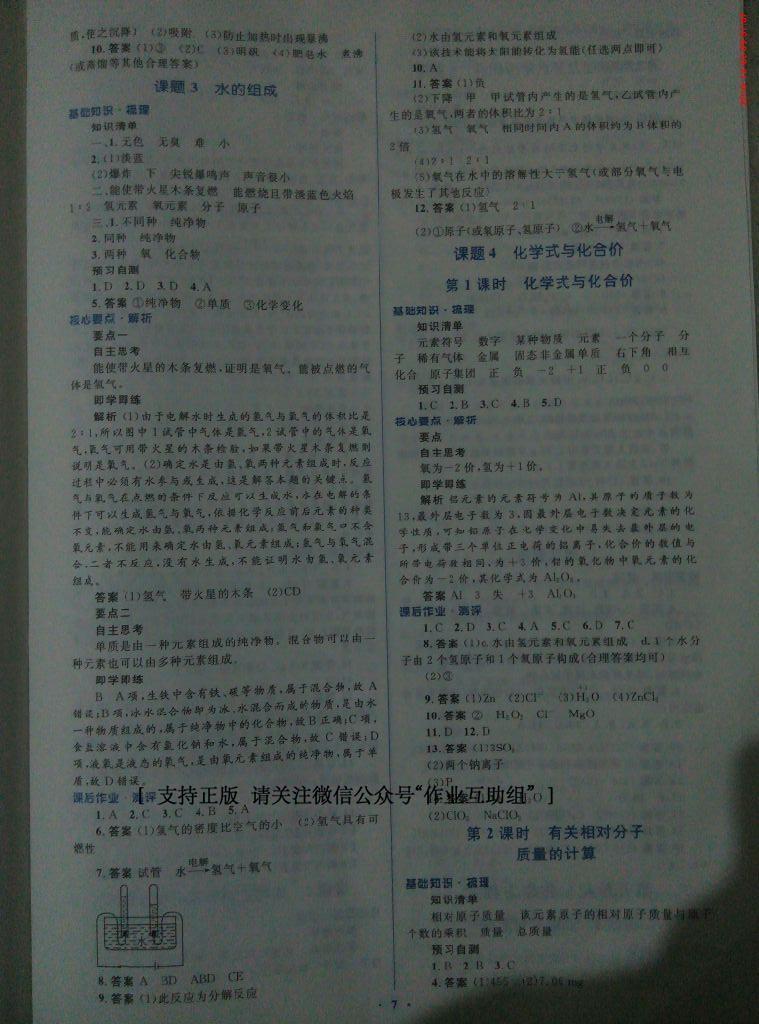 质,使之沉降) (2)吸附 (3)防止加热时出现暴沸
10.答案 (1)③ (2)C (3)明矾 (4)肥皂水 煮沸
(或蒸馏等其他合理答案)
课题3 水的组成
基础知识·梳理
知识清单
一、1.无色 无臭 难 小
2.(1)淡蓝
(2)爆炸 下 尖锐爆鸣声 声音极小
二、能使带火星木条复燃 能燃烧且带淡蓝色火焰
1∶2 氢元素 氧元素 分子 原子
三、1.不同种 纯净物
2.同种 纯净物
3.两种 氧 化合物
预习自测
1.D 2.D 3.D 4.A
5.答案 ①纯净物 ②单质 ③化学变化
核心要点·解析
要点一
自主思考
能使带火星的木条复燃,证明是氧气。能被点燃的气
体是氢气。
即学即练
解析 (1)由于电解水时生成的氢气与氧气的体积比是
2∶1,所以图中1试管中气体是氢气,2试管中的气体是氧
气,氧气可用带火星的木条检验,如果带火星木条复燃则
说明是氧气。(2)确定水是由氢、氧两种元素组成时,反应
过程中必须有水参与或生成,这是解答本题的关键点。氢
气与氧气在点燃的条件下反应可以生成水,水在电解的条
件下可以生成氢气与氧气,依据化学反应前后元素的种类
不变,能确定水由氢、氧两种元素组成;氢气和氯气中不含
氧元素,不能用来确定水由氢、氧元素组成;氢气与氧气混
合,二者不反应,没有水生成,不能证明水由氢、氧元素
组成。
答案 (1)氢气 带火星的木条 (2)CD
要点二
自主思考
单质是由一种元素组成的纯净物。混合物可以由一
种元素也可以由多种元素组成。
即学即练
B A项,生铁中含有铁、碳等物质,属于混合物,故A
错误;B项,冰水混合物即为冰、水混合而成的物质,是由水
一种物质组成的,属于纯净物中的化合物,故B正确;C项,
食盐溶液中含有氯化钠和水,属于混合物,故C错误;D
项,液氧是液态的氧气,是由氧元素组成的纯净物,属于单
质,故D错误。
[ 支持正版 请关注微信公众号“作业互助组” ]
课后作业·测评
1.A 2.C 3.C 4.B 5.A
6.答案 (1)氢气的密度比空气的小 (2)氢气具有可
燃性
7.答案 试管 水 电解→ 氢气+氧气
8.答案 A BD ABD CE
9.答案 (1)此反应为分解反应
(2)水由氢元素和氧元素组成
(3)该技术能将太阳能转化为氢能(任选两点即可)
10.A
11.答案 (1)负
(2)下降 甲 甲试管内产生的是氢气,乙试管内产
生的是氧气,两者的体积比为2∶1
(3)氢气 氧气 相同时间内A的体积约为B体积的
2倍
(4)2∶1 2∶1
(5)氧气在水中的溶解性大于氢气(或部分氧气与电
极发生了其他反应)
12.答案 (1)氢气 2∶1
(2)①原子(或氧原子、氢原子) ②水 电解→ 氢气+氧气
课题4 化学式与化合价
第1课时 化学式与化合价
基础知识·梳理
知识清单
元素符号 数字 某种物质 元素 一个分子 分
子 稀有气体 金属 固态非金属单质 右下角 相互
化合 原子集团 正 负 -2 +1 正 负 0 0
预习自测
1.C 2.B 3.C 4.B 5.D
核心要点·解析
要点
自主思考
氧为-2价,氢为+1价。
即学即练
解析 铝元素的元素符号为Al,其原子的质子数为
13,最外层电子数为3,因最外层电子数决定元素的化
学性质,可知铝原子在化学变化中易失去最外层的电
子,形成带三个单位正电荷的铝离子,化合价的数值与
所带电荷数相同,为+3价,铝的氧化物中氧元素的化
合价为-2价,其化学式为Al₂O₃。
答案 Al 3 失 +3 Al₂O₃
课后作业·测评
1.C 2.D 3.C 4.A 5.C 6.D 7.C
8.答案 (1)c.水由氢元素和氧元素组成 d.1个水分
子由2个氢原子和1个氧原子构成(合理答案均可)
(2)③
9.答案 (1)Zn (2)Cl⁻ (3)H₂O (4)ZnCl₂
10.答案 ② H₂O₂ Cl⁻ MgO
11.D 12.D
13.答案 (1)3SO₃
(2)两个钠离子
(3)P
(2)ClO₂ NaClO₂
第2课时 有关相对分子
质量的计算
基础知识·梳理
知识清单
相对原子质量 该元素原子的相对原子质量与原子
个数的乘积 质量 总质量
预习自测
1.B 2.B 3.C
4.答案 (1)455 (2)7.06 mg
· 7 ·